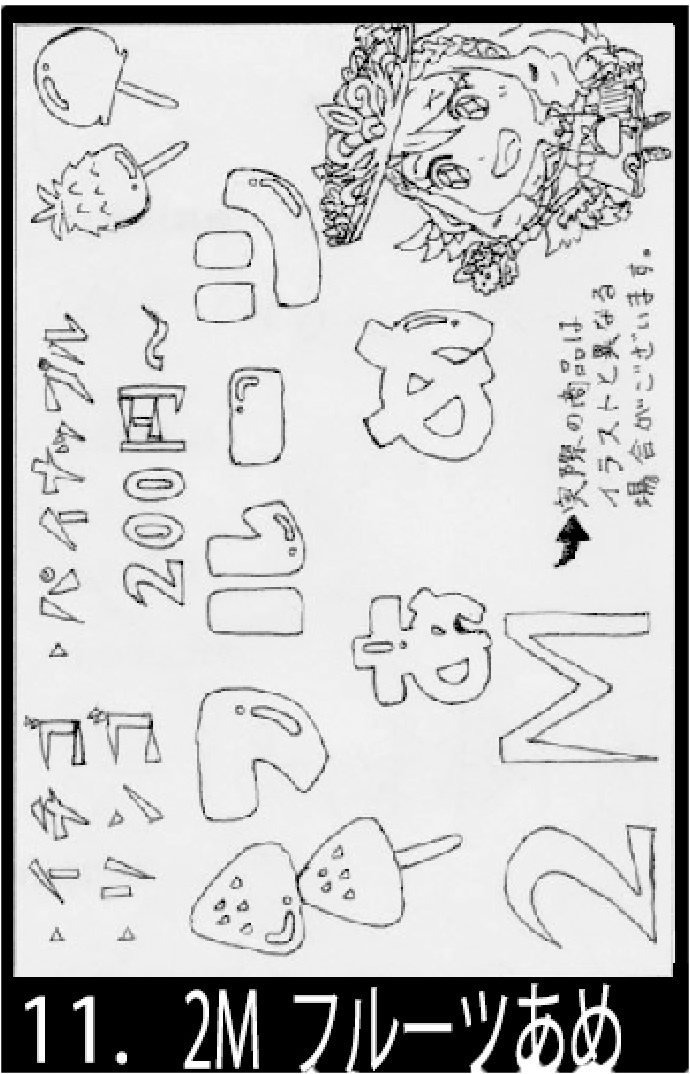 ・イチゴ ・パイナップル
・リンゴ 200円〜
フルーツ
あめ
2M
実際の商品は
イラストと異なる
場合がございます。
11. 2M フルーツあめ